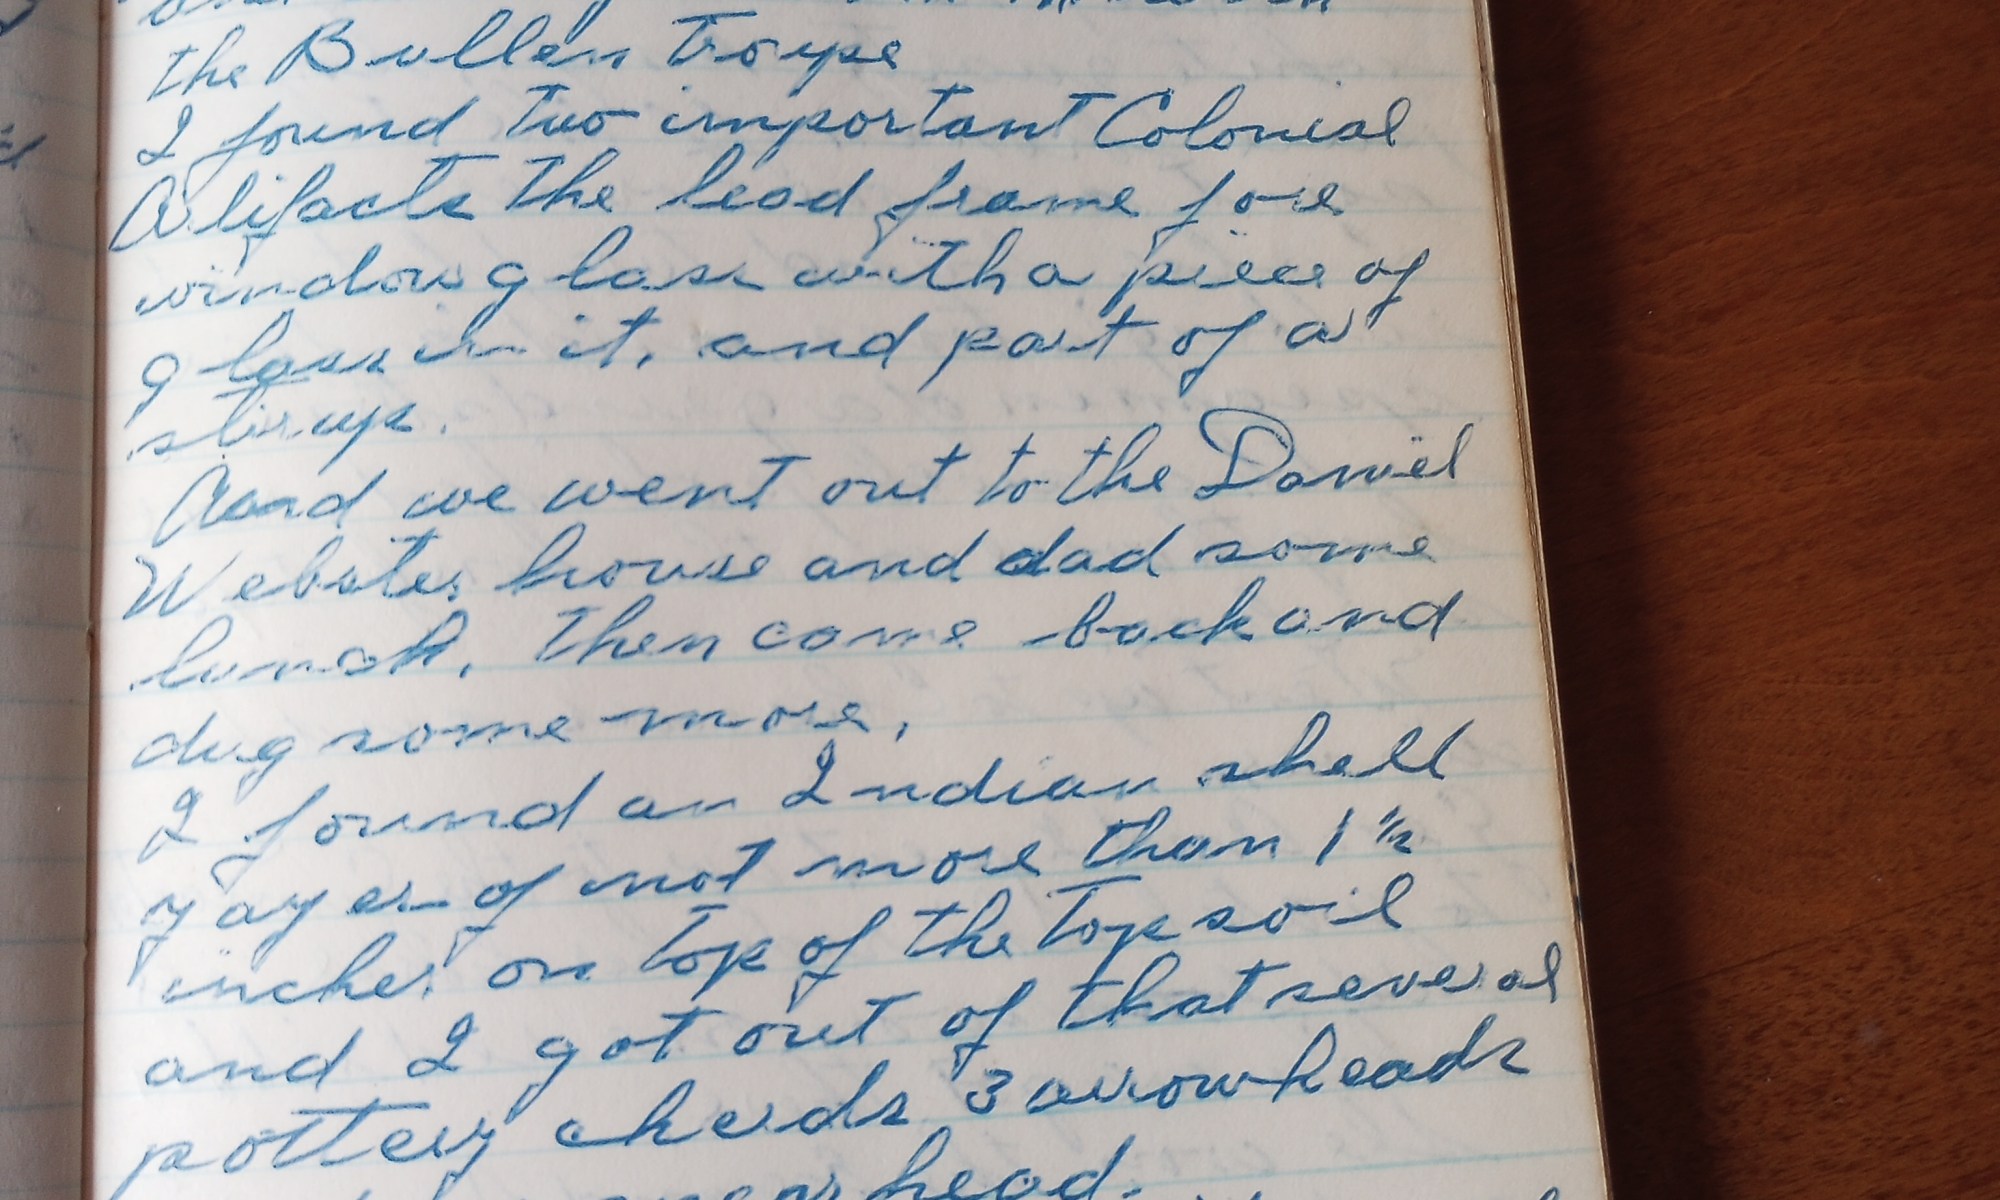 the Bullen Troupe
I found two important Colonial
Artifacts the lead frame fore
window glass with a piece of
glass in it, and part of a
stirup.
Aand we went out to the Daniel
Webster house and dad some
lunch, then came back and
dug some more,
I found an Indian shell
yayer of not more than 1 1/2
inches on top of the top soil
and I got out of that several
pottery cherds 3 arrowheads
head.